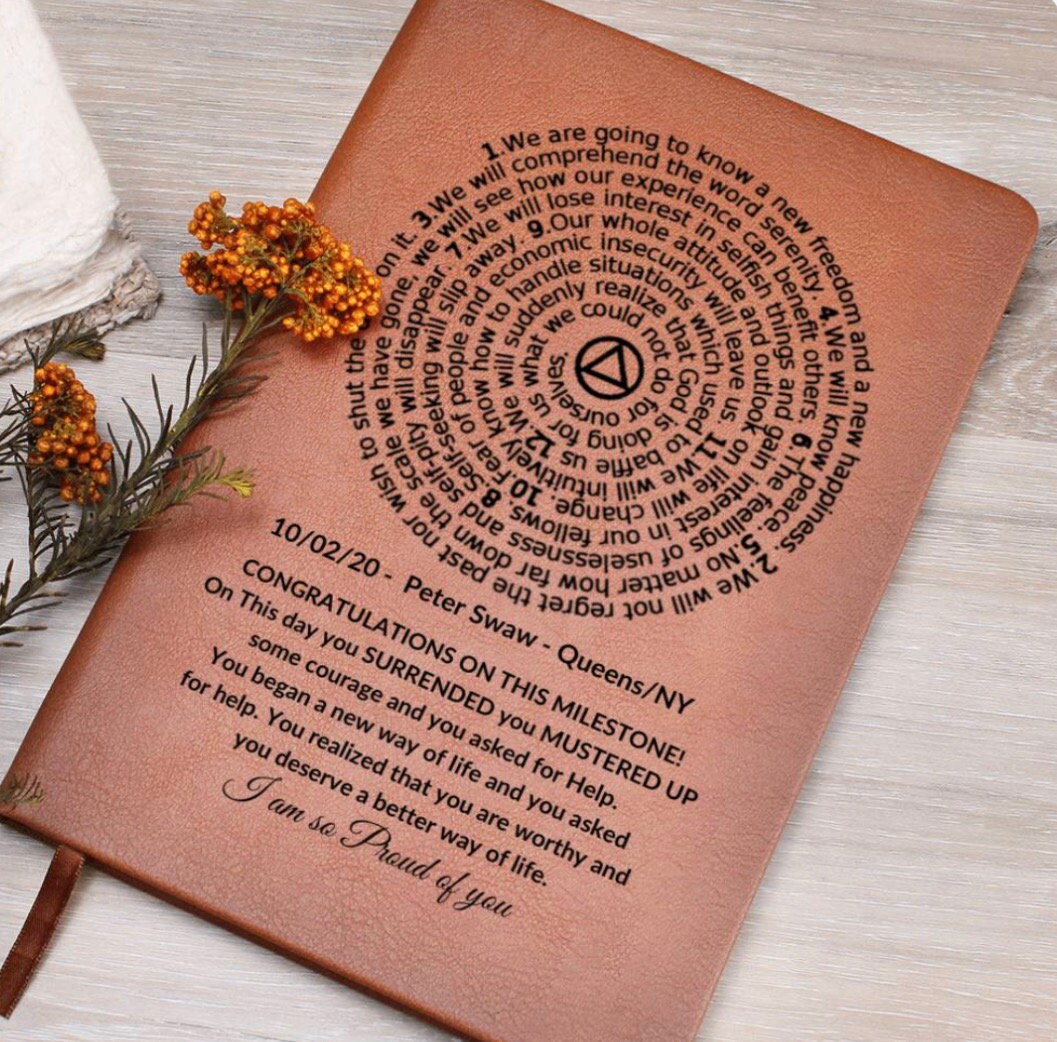 1.We are going to know a new freedom and a new happiness.
2.We will not regret the past nor wish to shut the on it.
3.We will comprehend the word serenity.
4.We will know peace.
5.No matter how far down the scale we have gone, we will see how our experience can benefit others.
6.The feelings of uselessness and self-pity will disappear.
7.We will lose interest in selfish things and gain interest in our fellows.
8.Self-seeking will slip away.
9.Our whole attitude and outlook on life will change.
10.Fear of people and economic insecurity will leave us.
11.We will intuitively know how to handle situations which used to baffle us.
12.We will suddenly realize that God is doing for us what we could not do for ourselves.
10/02/20 - Peter Swaw - Queens/NY
CONGRATULATIONS ON THIS MILESTONE!
On This day you SURRENDED you MUSTERED UP
some courage and you asked for Help.
You began a new way of life and you asked
for help. You realized that you are worthy and
you deserve a better way of life.
I am so Proud of you